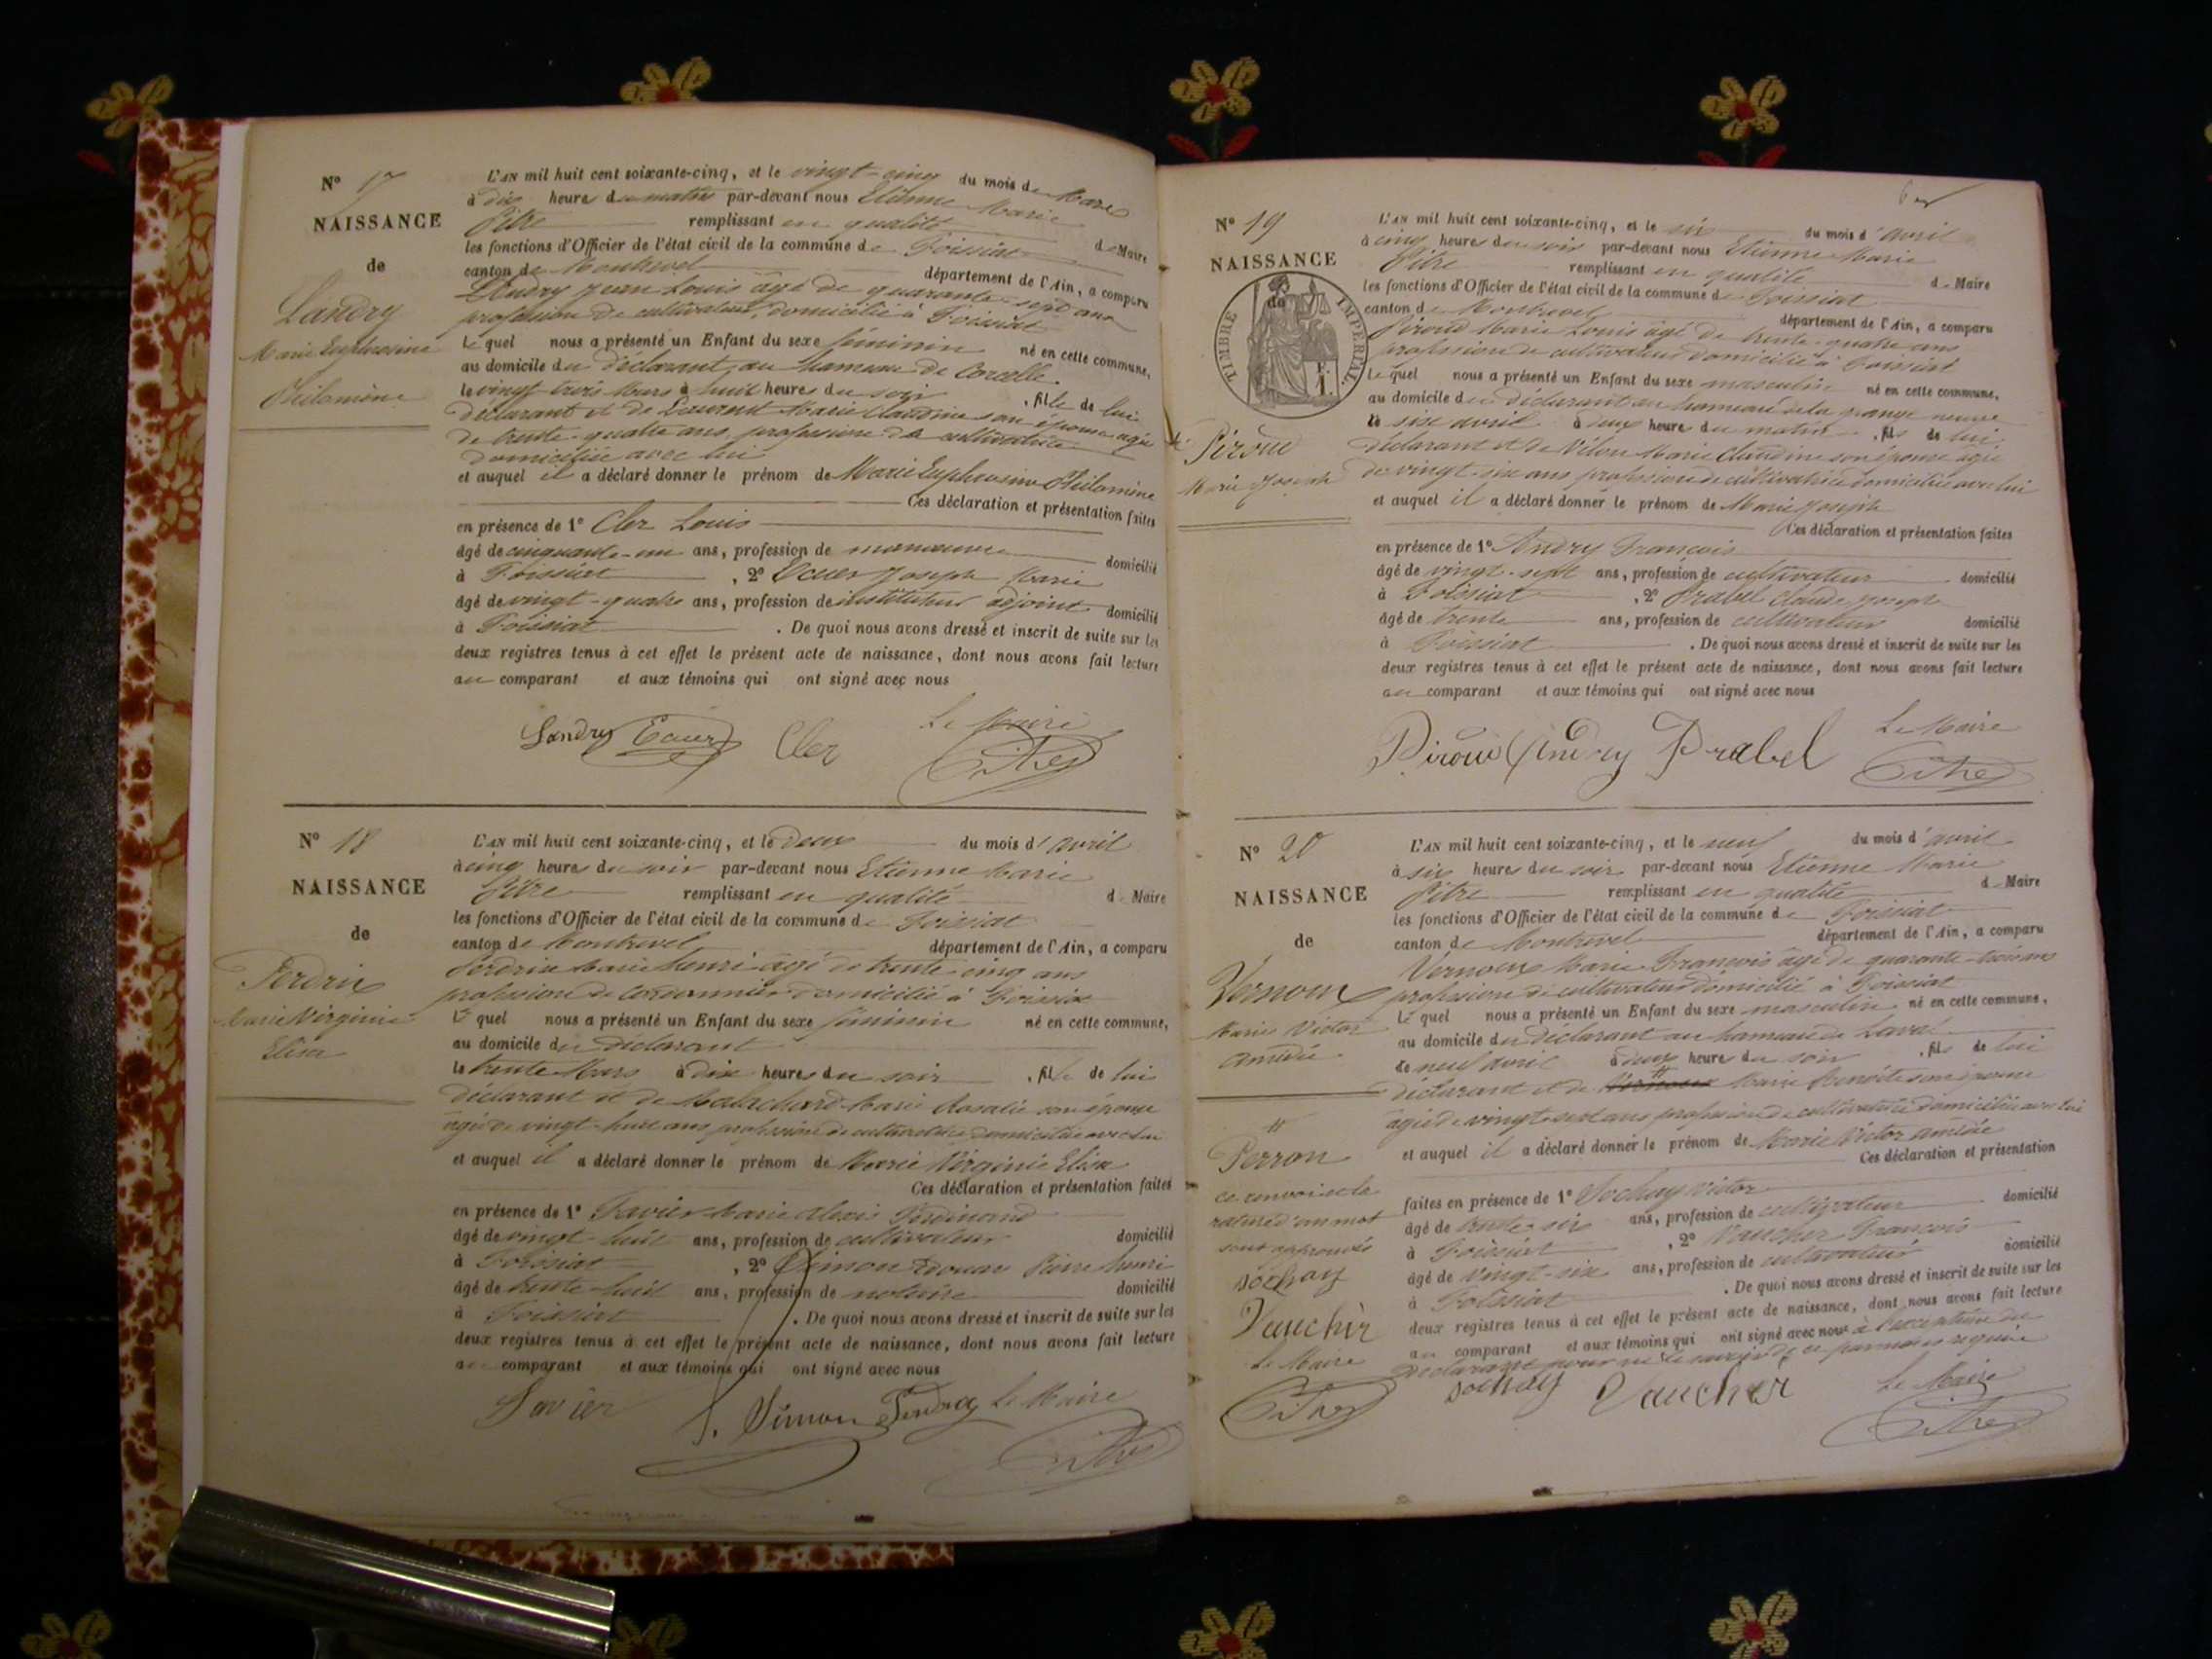 N° 17
NAISSANCE
de
Landry
Marie Euphrosine
Philomène
L'AN mil huit cent soixante-cinq, et le vingt-cinq du mois de Mars
à dix heures du matin par-devant nous Etienne Marie
Pitre remplissant en qualité de Maire
les fonctions d'Officier de l'état civil de la commune de Foissiat
canton de Montrevel département de l'Ain, a comparu
Landry Jean Louis âgé de quarante-sept ans
profession de cultivateur, domicilié à Foissiat
Lequel nous a présenté un Enfant du sexe féminin né en cette commune,
au domicile du déclarant, au hameau de Corcelle
le vingt trois Mars à huit heures du soir, fille de lui
déclarant et de Laurent Marie Claudine son épouse âgée
de trente-quatre ans, profession de cultivatrice
domiciliée avec lui
et auquel il a déclaré donner le prénom de Marie Euphrosine Philomène
Ces déclaration et présentation faites
en présence de 1° Cler Louis
âgé de cinquante-un ans, profession de manoeuvre domicilié
à Foissiat, 2° Ecuer Joseph Marie
âgé de vingt-quatre ans, profession de instituteur adjoint domicilié
à Foissiat. De quoi nous avons dressé et inscrit de suite sur les
deux registres tenus à cet effet le présent acte de naissance, dont nous avons fait lecture
au comparant et aux témoins qui ont signé avec nous
Landry Ecuer Cler Le Maire
Pitre
N° 18
NAISSANCE
de
Perdrix
Marie Virginie
Elisa
L'AN mil huit cent soixante-cinq, et le deux du mois d'avril
à cinq heures du soir par-devant nous Etienne Marie
Pitre remplissant en qualité de Maire
les fonctions d'Officier de l'état civil de la commune de Foissiat
canton de Montrevel département de l'Ain, a comparu
Perdrix Marie henri âgé de trente-cinq ans
profession de Cordonnier domicilié à Foissiat
Lequel nous a présenté un Enfant du sexe féminin né en cette commune,
au domicile du déclarant
le trente Mars à dix heures du soir, fille de lui
déclarant et de Marie Rosalie son épouse
âgée de vingt-huit ans profession de cultivatrice domiciliée avec lui
et auquel il a déclaré donner le prénom de Marie Virginie Elisa
Ces déclaration et présentation faites
en présence de 1° Favier Marie Alexis Ferdinand
âgé de vingt-huit ans, profession de cultivateur domicilié
à Foissiat, 2° Simon Edouard Pierre henri
âgé de trente-huit ans, profession de notaire domicilié
à Foissiat. De quoi nous avons dressé et inscrit de suite sur les
deux registres tenus à cet effet le présent acte de naissance, dont nous avons fait lecture
au comparant et aux témoins qui ont signé avec nous
Favier Simon Perdrix Le Maire
Pitre
N° 19
NAISSANCE
de
TIMBRE IMPERIAL
Piroud
Marie Joseph
L'AN mil huit cent soixante-cinq, et le six du mois d'avril
à cinq heures du soir par-devant nous Etienne Marie
Pitre remplissant en qualité de Maire
les fonctions d'Officier de l'état civil de la commune de Foissiat
canton de Montrevel département de l'Ain, a comparu
Piroud Marie Louis âgé de trente-quatre ans
profession de cultivateur domicilié à Foissiat
Lequel nous a présenté un Enfant du sexe masculin né en cette commune,
au domicile du déclarant au hameau de la grange neuve
le six avril à deux heures du matin, fils de lui
déclarant et de Marie Claudine son épouse âgée
de vingt-six ans profession de cultivatrice domiciliée avec lui
et auquel il a déclaré donner le prénom de Marie Joseph
Ces déclaration et présentation faites
en présence de 1° Andry François
âgé de vingt-sept ans, profession de cultivateur domicilié
à Foissiat, 2° Prabel Claude Joseph
âgé de trente ans, profession de cultivateur domicilié
à Foissiat. De quoi nous avons dressé et inscrit de suite sur les
deux registres tenus à cet effet le présent acte de naissance, dont nous avons fait lecture
au comparant et aux témoins qui ont signé avec nous
Piroud Andry Prabel Le Maire
Pitre
N° 20
NAISSANCE
de
Vernoux
Marie Victor
Amédée
L'AN mil huit cent soixante-cinq, et le neuf du mois d'avril
à six heures du soir par-devant nous Etienne Marie
Pitre remplissant en qualité de Maire
les fonctions d'Officier de l'état civil de la commune de Foissiat
canton de Montrevel département de l'Ain, a comparu
Vernoux Marie François âgé de quarante-trois ans
profession de cultivateur domicilié à Foissiat
Lequel nous a présenté un Enfant du sexe masculin né en cette commune,
au domicile du déclarant au hameau de Laval
le neuf avril à deux heures du soir, fils de lui
déclarant et de Marie Benoite son épouse
âgée de vingt-sept ans profession de cultivatrice domiciliée avec lui
et auquel il a déclaré donner le prénom de Marie Victor amédée
Ces déclaration et présentation
faites en présence de 1° Sochay Victor
âgé de trente-six ans, profession de cultivateur domicilié
à Foissiat, 2° Vaucher François
âgé de vingt-six ans, profession de cultivateur domicilié
à Foissiat. De quoi nous avons dressé et inscrit de suite sur les
deux registres tenus à cet effet le présent acte de naissance, dont nous avons fait lecture
au comparant et aux témoins qui ont signé avec nous à l'exception du
déclarant pour ne le savoir de ce par nous requis
Sochay Vaucher Le Maire
Pitre
#
Perron
ce renvoi et la
rature d'un mot
sont approuvés
Sochay
Vaucher
Le Maire
Pitre